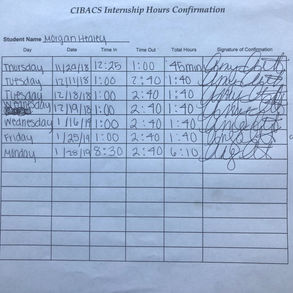 CIBACS Internship Hours Confirmation
Student Name Morgan Healey
Day Date Time In Time Out Total Hours Signature of Confirmation
Thursday 11/29/18 12:25 1:00 45min
Tuesday 12/11/18 1:00 2:40 1:40
Tuesday 12/18/18 1:00 2:40 1:40
Wednesday 12/19/18 1:00 2:40 1:40
Wednesday 1/16/19 1:00 2:40 1:40
Friday 1/25/19 1:00 2:40 1:40
Monday 1/28/19 8:30 2:40 6:10